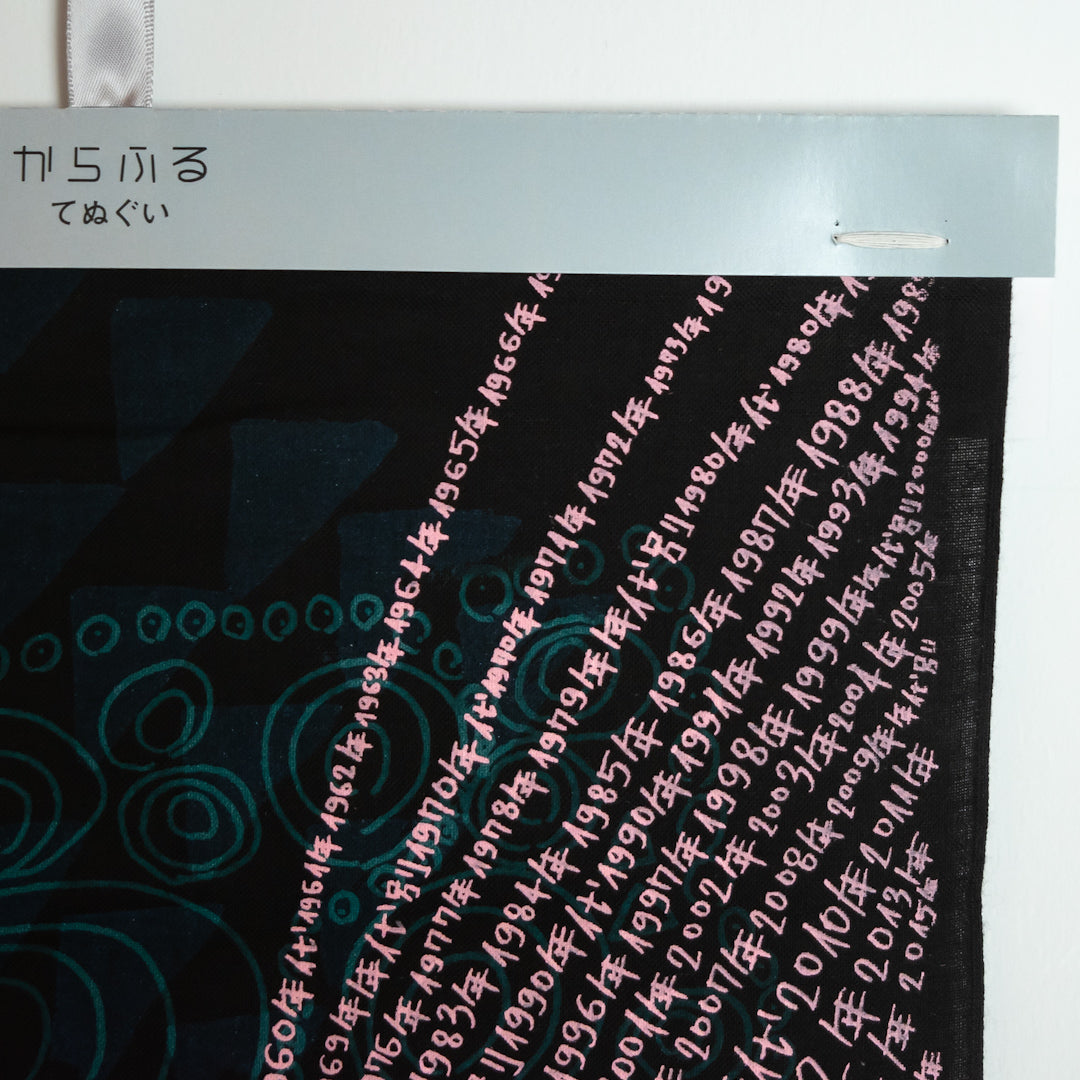 からふる
てぬぐい
960年代1961年1962年1963年1964年1965年1966年19
969年年代別1970年代1970年1971年1972年1973年19
976年1977年1978年1979年年代別1980年代1980年1
1983年1984年1985年1986年1987年1988年198
別1990年代1990年1991年1992年1993年1994年
1996年1997年1998年1999年年代別2000年代
001年2002年2003年2004年2005年
2007年2008年2009年年代別
代2010年2011年
年2013年
年2015年
年